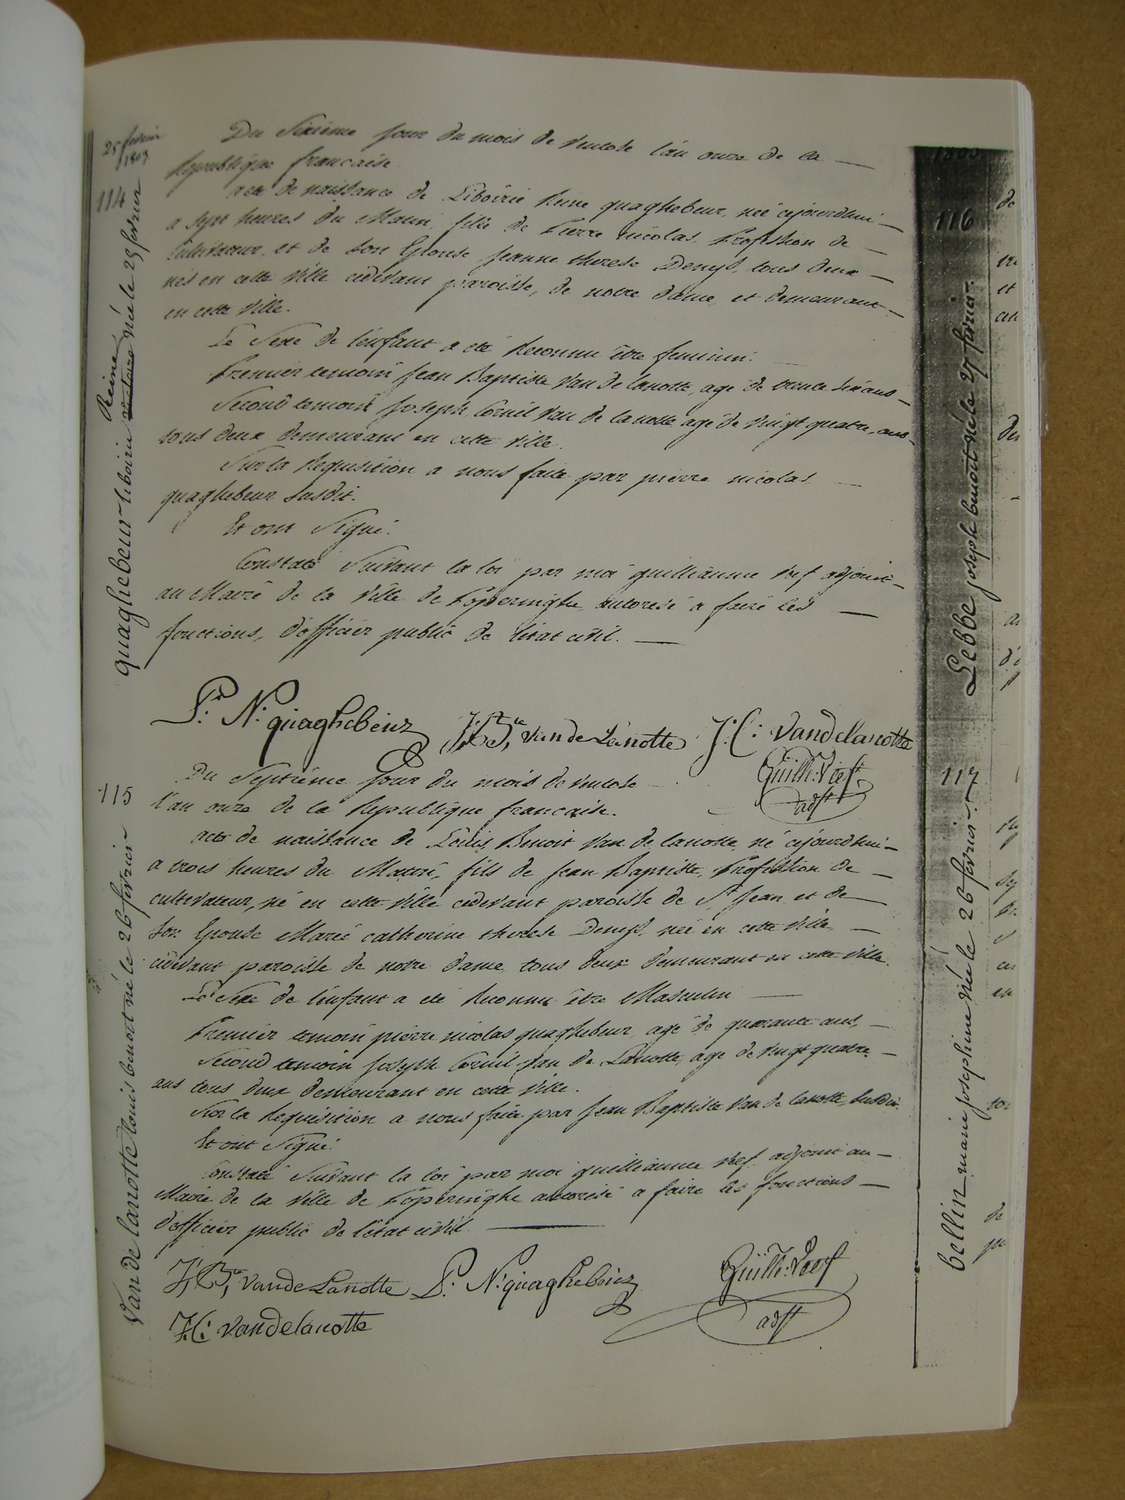 25 février
1803
114
quaghebeur liboiri Reine née le 25 fevrier
Du Sixième jour du mois de ventose l'an onze de la
Republique francaise.
acte de naissance de Liboirie Reine quaghebeur, née cejourdhui
a sept heures du Matin, fille de Pierre nicolas, Profession de
Cultivateur, et de son Epouse jeanne therese Denys, tous deux
nés en cette ville cidevant paroisse, de notre dame, et demeurant
en cette ville.
Le Sexe de l'enfant a été Reconnu être feminin.
Premier temoin Jean Baptiste Van de lanotte, agé de trente ans
Second temoin Joseph Cornil Van de lanotte agé de vingt quatre, ans
tous deux demeurant en cette ville.
Sur la Requisition a nous faite par pierre nicolas
quaghebeur susdit.
Et ont Signé.
Constaté Suivant la loi par moi guilliaume Verf adjoint
au Maire de la Ville de Poperinghe autorisé a faire les
fonctions, d'officier public de l'état civil.
P.r N.s quaghebeur J. B.te vandeLanotte J: C: Vandelanotte
Guill: Verf
adjt
115
Van de lanotte louis benoit né le 26 février
Du Septième jour du mois de ventose
l'an onze de la Republique francaise.
acte de naissance de Louis Benoit Van de lanotte, né cejourdhui
a trois heures du Matin, fils de Jean Baptiste, Profession de
cultivateur, né en cette ville cidevant paroisse de St Jean et de
son Epouse Marie catherine therese Denys, née en cette ville
cidevant paroisse de notre dame tous deux demeurant en cette ville.
Le Sexe de l'enfant a été Reconnu être Masculin
Premier temoin pierre nicolas quaghebeur, agé de quarante ans,
Second temoin Joseph Cornil Van de Lanotte, agé de vingt quatre
ans tous deux demeurant en cette ville.
Sur la Requisition a nous faite par Jean Baptiste Van de lanotte, susdit
Et ont Signé.
Constaté Suivant la loi par moi guilliaume Verf adjoint au
Maire de la Ville de Poperinghe autorisé a faire les fonctions
d'officier public de l'état civil.
J. B.te vandeLanotte P.r N.s quaghebeur Guill: Verf
J.C: Vandelanotte adjt
116
Lebbe joseph benoit né le 27 février.
117
bellin marie josephine née le 26 février.